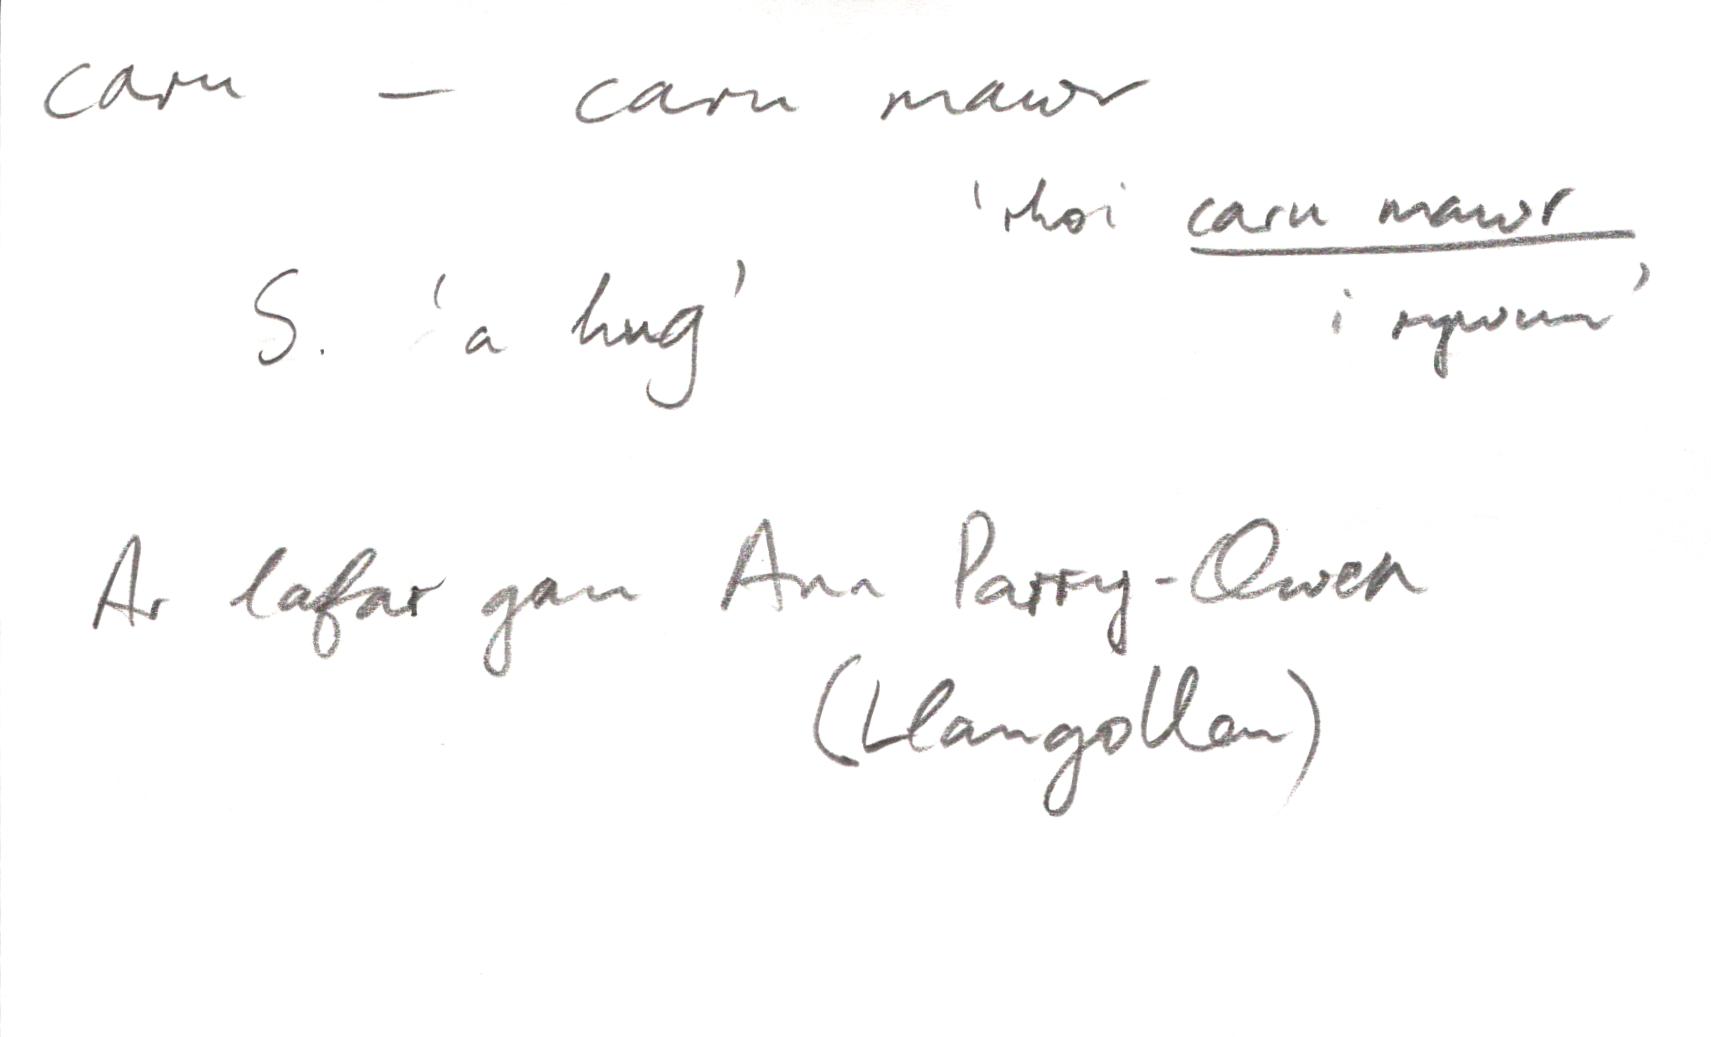 caru – caru mawr
'rhoi caru mawr
i rywun'
S. 'a hug'
Ar lafar gan Ann Parry-Owen
(Llangollen)